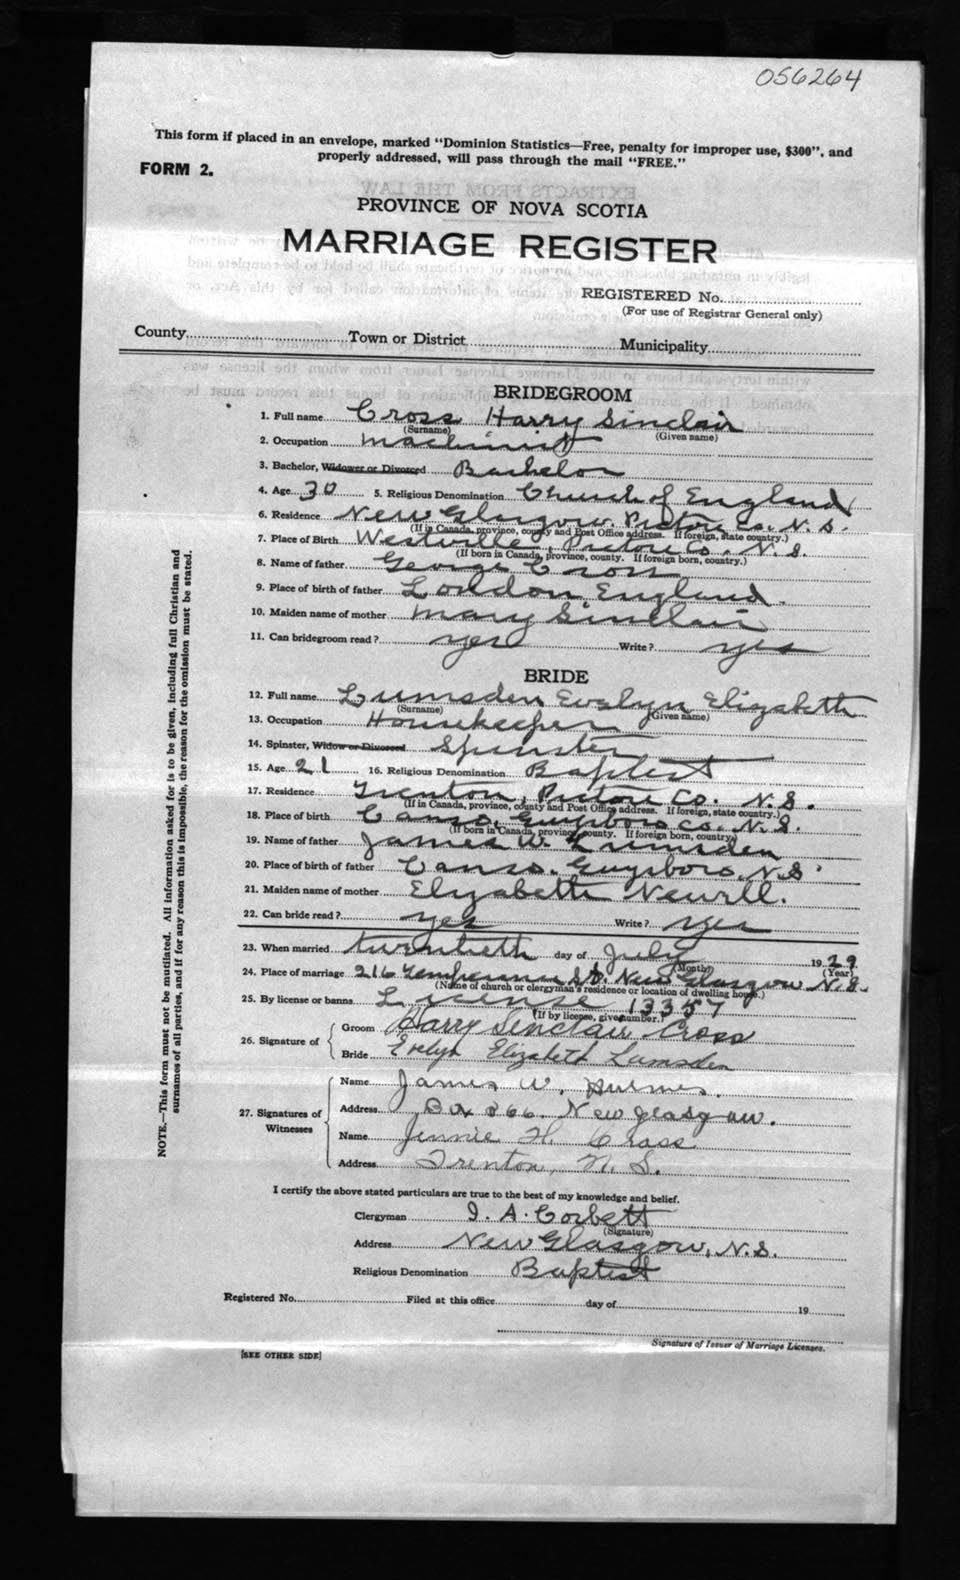 056264
This form if placed in an envelope, marked "Dominion Statistics—Free, penalty for improper use, $300", and
properly addressed, will pass through the mail "FREE."
FORM 2.
EXTRACTS FROM THE LAW
PROVINCE OF NOVA SCOTIA
MARRIAGE REGISTER
REGISTERED No.
(For use of Registrar General only)
County Town or District Municipality
BRIDEGROOM
1. Full name Cross Harry Sinclair
(Surname) (Given name)
2. Occupation Machinist
3. Bachelor, Widower or Divorced Bachelor
4. Age 30 5. Religious Denomination Church of England
6. Residence New Glasgow. Pictou Co. N. S.
(If in Canada, province, county and Post Office address. If foreign, state country.)
7. Place of Birth Westville, Pictou Co. N. S.
(If born in Canada, province, county. If foreign born, country.)
8. Name of father George Cross
9. Place of birth of father London England.
10. Maiden name of mother Mary Sinclair
11. Can bridegroom read? yes Write? yes
BRIDE
12. Full name Lumsden Evelyn Elizabeth
(Surname) (Given name)
13. Occupation Housekeeper
14. Spinster, Widow or Divorced Spinster
15. Age 21 16. Religious Denomination Baptist
17. Residence Trenton, Pictou Co. N. S.
(If in Canada, province, county and Post Office address. If foreign, state country.)
18. Place of birth Canso, Guysboro Co. N. S.
(If born in Canada, province, county. If foreign born, country)
19. Name of father James W. Lumsden
20. Place of birth of father Canso. Guysboro, N.S.
21. Maiden name of mother Elizabeth Newell.
22. Can bride read? yes Write? yes
23. When married twentieth day of July 1929
(Month) (Year)
24. Place of marriage 216 Temperance St. New Glasgow N.S.
(Name of church or clergyman's residence or location of dwelling house.)
25. By license or banns License 13357
(If by license, give number.)
26. Signature of
Groom Harry Sinclair Cross
Bride Evelyn Elizabeth Lumsden
27. Signatures of
Witnesses
Name James W.
Address Box 866. New glasgow.
Name Jennie H. Cross
Address Trenton, N. S.
I certify the above stated particulars are true to the best of my knowledge and belief.
Clergyman I. A. Corbett
(Signature)
Address New Glasgow, N.S.
Religious Denomination Baptist
Registered No. Filed at this office day of 19
Signature of Issuer of Marriage Licenses.
[SEE OTHER SIDE]
NOTE.—This form must not be mutilated. All information asked for is to be given, including full Christian and
surnames of all parties, and if for any reason this is impossible, the reason for the omission must be stated.